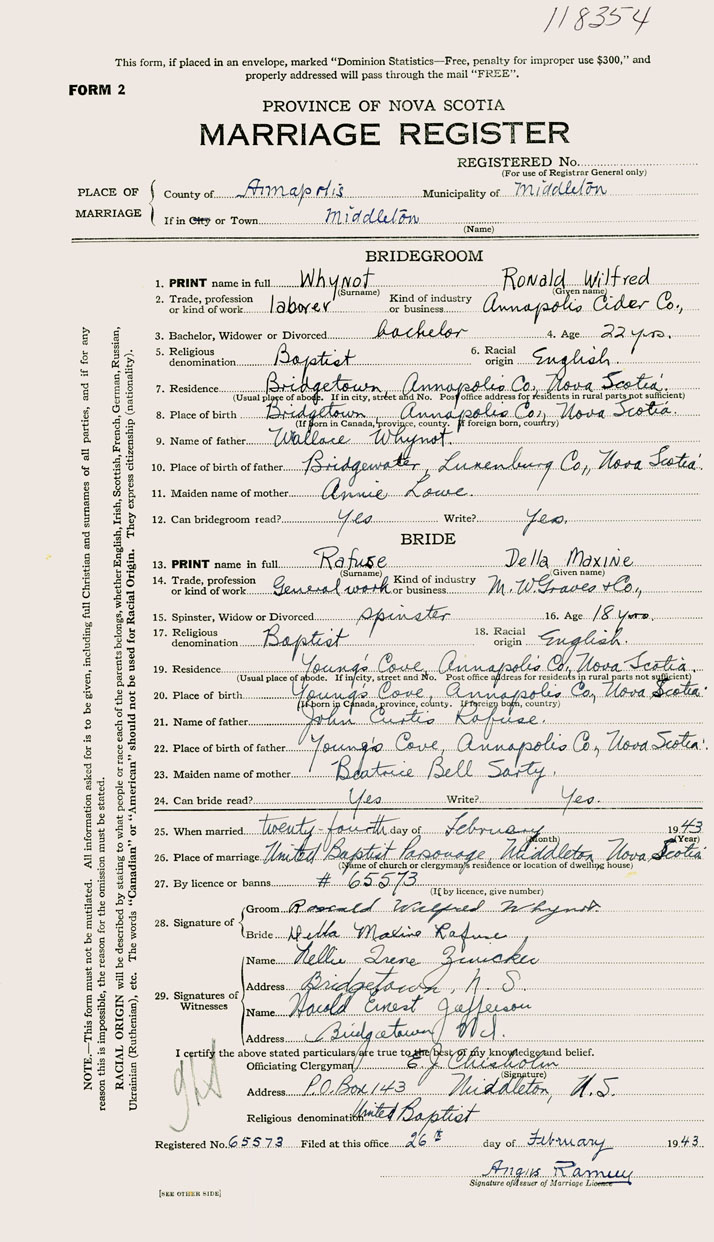 118354
This form, if placed in an envelope, marked “Dominion Statistics—Free, penalty for improper use $300,” and
properly addressed will pass through the mail “FREE”.
FORM 2
PROVINCE OF NOVA SCOTIA
MARRIAGE REGISTER
REGISTERED No.
(For use of Registrar General only)
PLACE OF MARRIAGE
County of Annapolis Municipality of Middleton
If in City or Town Middleton
(Name)
BRIDEGROOM
1. PRINT name in full Whynot Ronald Wilfred
(Surname) (Given name)
2. Trade, profession or kind of work laborer Kind of industry or business Annapolis Cider Co.,
3. Bachelor, Widower or Divorced bachelor 4. Age 22 yrs.
5. Religious denomination Baptist 6. Racial origin English.
7. Residence Bridgetown, Annapolis Co., Nova Scotia.
(Usual place of abode. If in city, street and No. Post office address for residents in rural parts not sufficient)
8. Place of birth Bridgetown, Annapolis Co., Nova Scotia.
(If born in Canada, province, county. If foreign born, country)
9. Name of father Wallace Whynot.
10. Place of birth of father Bridgewater, Lunenburg Co., Nova Scotia.
11. Maiden name of mother Annie Lowe.
12. Can bridegroom read? Yes Write? Yes.
BRIDE
13. PRINT name in full Rafuse Della Maxine
(Surname) (Given name)
14. Trade, profession or kind of work General work Kind of industry or business M. W. Graves & Co.,
15. Spinster, Widow or Divorced spinster 16. Age 18 yrs.
17. Religious denomination Baptist 18. Racial origin English.
19. Residence Young's Cove, Annapolis Co., Nova Scotia.
(Usual place of abode. If in city, street and No. Post office address for residents in rural parts not sufficient)
20. Place of birth Young's Cove, Annapolis Co., Nova Scotia.
(If born in Canada, province, county. If foreign born, country)
21. Name of father John Curtis Rafuse.
22. Place of birth of father Young's Cove, Annapolis Co., Nova Scotia.
23. Maiden name of mother Beatrice Bell Sarty.
24. Can bride read? Yes Write? Yes.
25. When married twenty-fourth day of February 1943
(Month) (Year)
26. Place of marriage United Baptist Parsonage, Middleton, Nova Scotia
(Name of church or clergyman's residence or location of dwelling house)
27. By licence or banns # 65573
(If by licence, give number)
28. Signature of
Groom Ronald Wilfred Whynot.
Bride Della Maxine Rafuse
29. Signatures of Witnesses
Name Nellie Irene Zwicker
Address Bridgetown, N. S.
Name Harold Ernest Jefferson
Address Bridgetown N.S.
I certify the above stated particulars are true to the best of my knowledge and belief.
Officiating Clergyman E. J. Chisholm
(Signature)
Address P.O. Box 143 Middleton, N.S.
Religious denomination United Baptist
Registered No. 65573 Filed at this office 26th day of February 1943.
Angus
Signature of Issuer of Marriage Licence
[SEE OTHER SIDE]
NOTE.—This form must not be mutilated. All information asked for is to be given, including full Christian and surnames of all parties, and if for any
reason this is impossible, the reason for the omission must be stated.
RACIAL ORIGIN will be described by stating to what people or race each of the parents belongs, whether English, Irish, Scottish, French, German, Russian,
Ukrainian (Ruthenian), etc. The words “Canadian” or “American” should not be used for Racial Origin. They express citizenship (nationality).